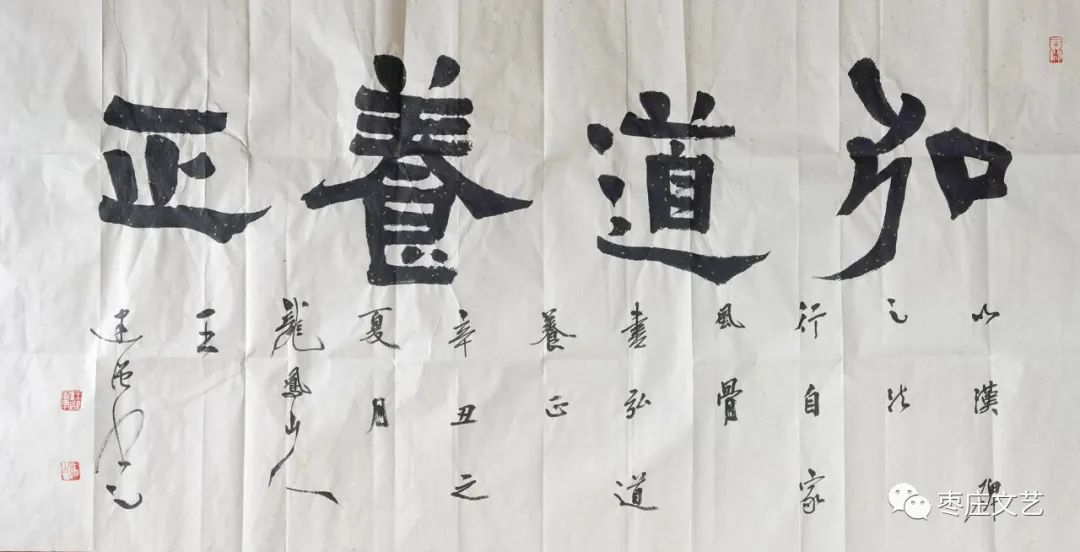 弘道養正
以漢碑
之法
行自家
風骨
書弘道
養正
辛丑之
夏月
龍鳳山人
王
枣庄文艺